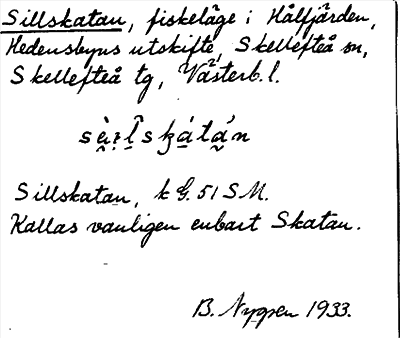 Sillskatan, fiskeläge i Hålfjärden,
Hedensbyns utskifte, Skellefteå sn,
Skellefteå tg, Västerb. l.
Sillskatan, k G. 51 SM.
Kallas vanligen enbart Skatan.
B. Nygren 1933.